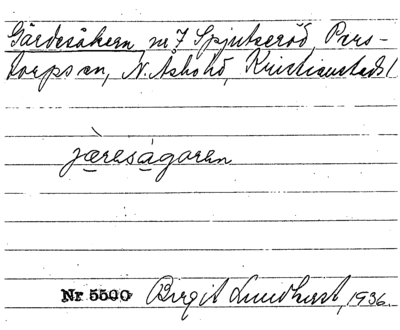 Gärdesåkern nr 7 Spjutseröd, Pers-
torps sn, N. Åsbo hd, Kristianstads l
jæ̀reságaren
Nr 5500 Birgit Lundkvist, 1936.